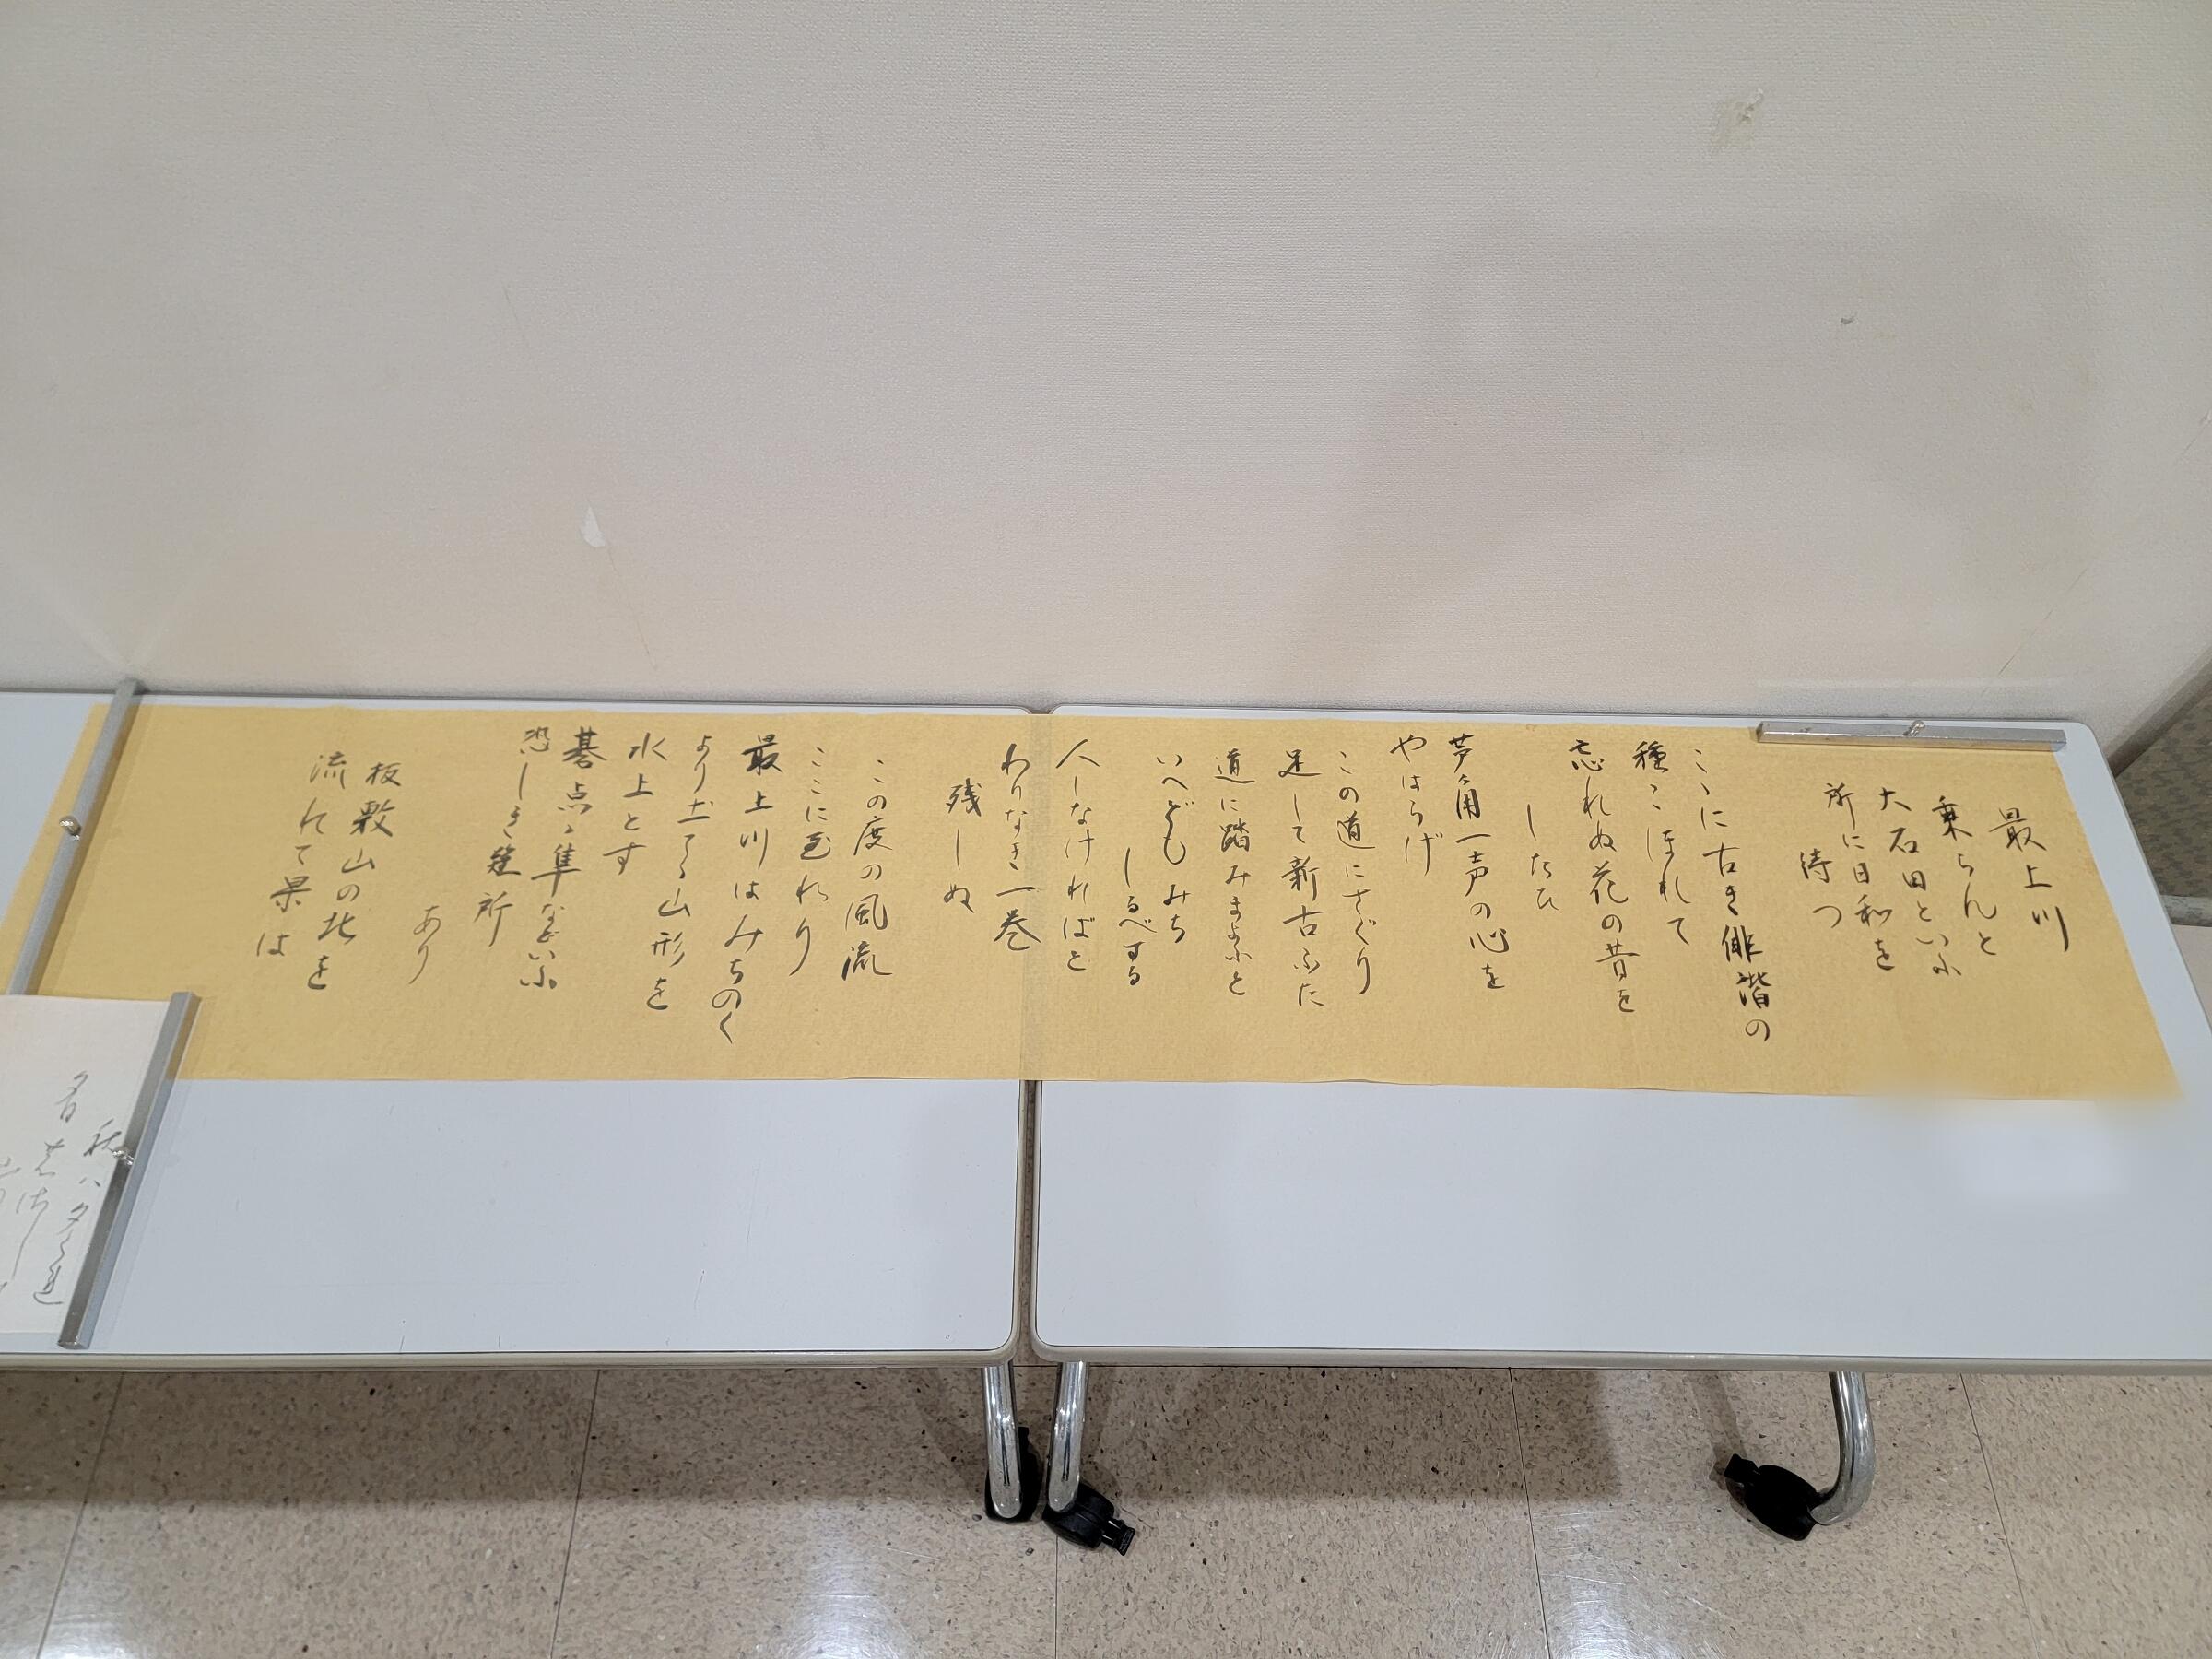 最上川
乗らんと
大石田といふ
所に日和を
待つ
こゝに古き俳諧の
種こほれて
忘れぬ花の昔を
したひ
芦角一声の心を
やはらげ
この道にさぐり
足して新古ふた
道に踏みまよふと
いへども みち
しるべする
人しなければと
わりなき一巻
残しぬ
この度の風流
ここに至れり
最上川はみちのく
より出てゝ山形を
水上とす
碁点、隼などいふ
恐しき難所
あり
板敷山の北を
流れて果は
秋ハ夕くれ
夕日